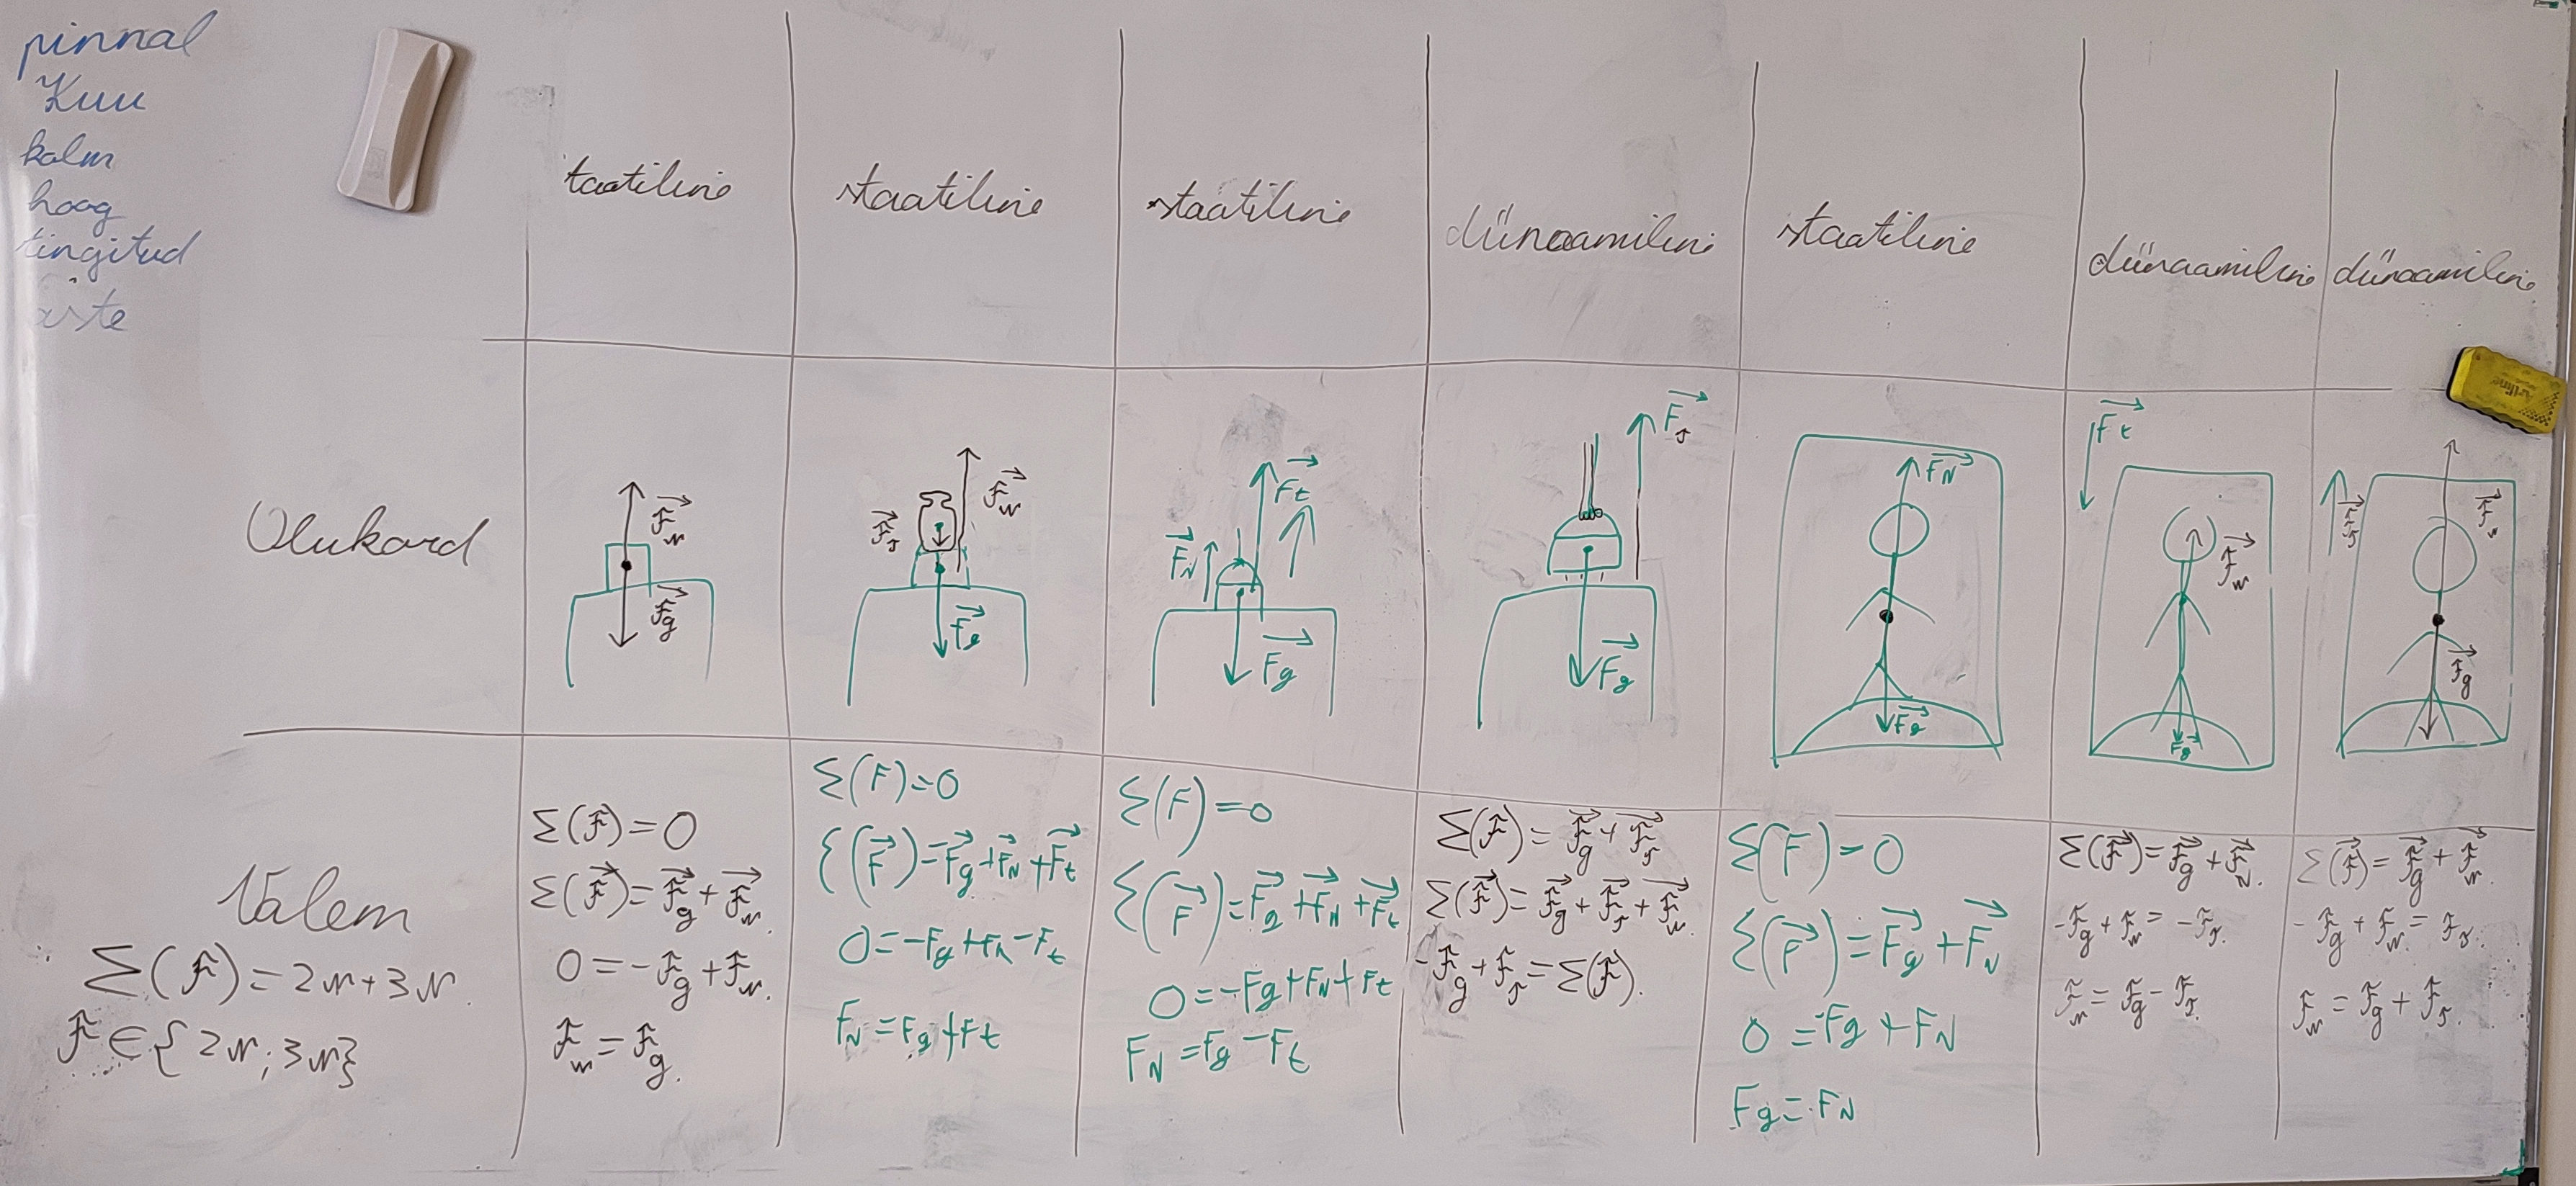 pinnal
Kuu
kalm
hoog
tingitud
taatiline
staatiline
staatiline
dünaamiline
staatiline
dünaamiline
dünaamiline
Olukord
F⃗N
F⃗g
F⃗J
F⃗N
F⃗g
F⃗N
F⃗t
F⃗g
F⃗J
F⃗g
F⃗N
F⃗g
F⃗t
F⃗N
F⃗g
F⃗J
F⃗N
F⃗g
Valem
Σ(F)=2N+3N.
F∈{2N;3N}
Σ(F)=0
Σ(F⃗)=F⃗g+F⃗N.
0=-Fg+FN.
FN=Fg.
Σ(F)=0
Σ(F⃗)=F⃗g+F⃗N+F⃗t
0=-Fg+FN-Ft
FN=Fg+Ft
Σ(F)=0
Σ(F⃗)=F⃗g+F⃗N+F⃗t
0=-Fg+FN+Ft
FN=Fg-Ft
Σ(F⃗)=F⃗g+F⃗J
Σ(F⃗)=F⃗g+F⃗J+F⃗N.
-Fg+FJ=Σ(F).
Σ(F)=0
Σ(F⃗)=F⃗g+F⃗N
0=-Fg+FN
Fg=FN
Σ(F⃗)=F⃗g+F⃗N.
-Fg+FN=-FJ.
FN=Fg-FJ.
Σ(F⃗)=F⃗g+F⃗N.
-Fg+FN=FJ.
FN=Fg+FJ.